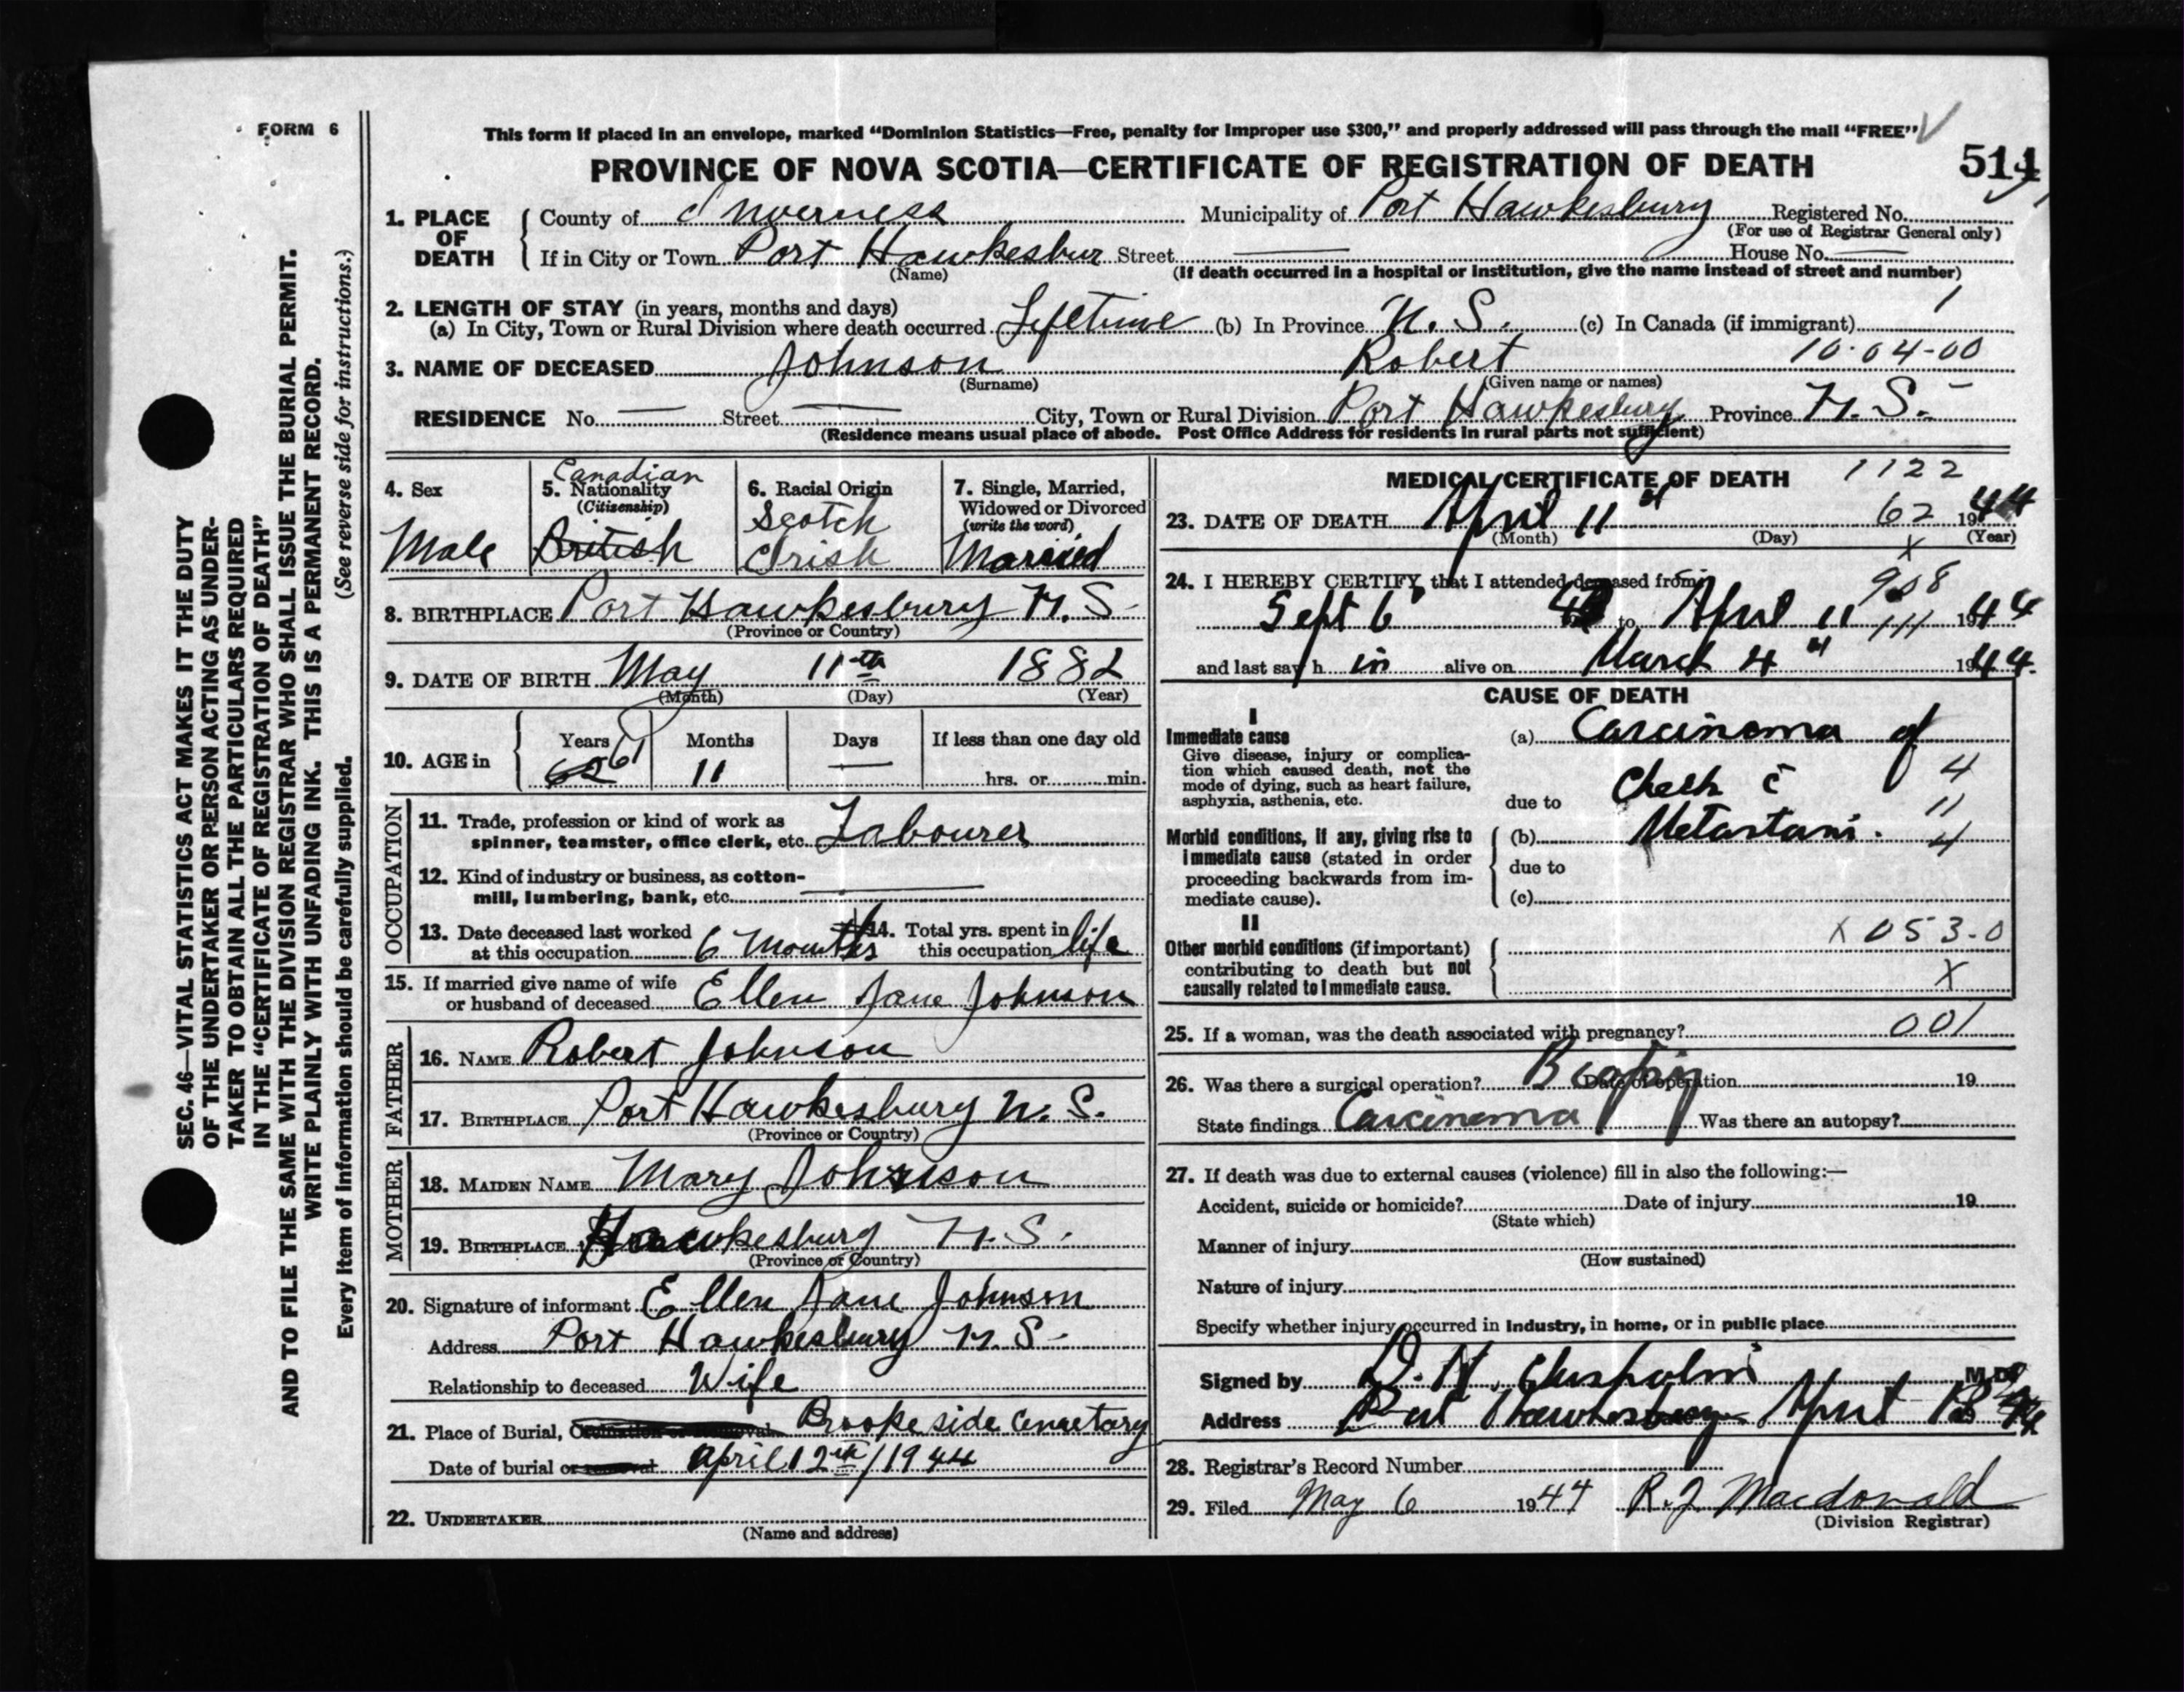 FORM 6
This form if placed in an envelope, marked “Dominion Statistics—Free, penalty for improper use $300,” and properly addressed will pass through the mail “FREE”
PROVINCE OF NOVA SCOTIA—CERTIFICATE OF REGISTRATION OF DEATH
514
1. PLACE OF DEATH
County of Inverness Municipality of Port Hawkesbury Registered No.
(For use of Registrar General only)
If in City or Town Port Hawkesbur Street — House No. —
(Name) (If death occurred in a hospital or institution, give the name instead of street and number)
2. LENGTH OF STAY (in years, months and days) 1
(a) In City, Town or Rural Division where death occurred Lifetime (b) In Province N. S. (c) In Canada (if immigrant)
10-04-00
3. NAME OF DECEASED Johnson Robert
(Surname) (Given name or names)
RESIDENCE No. — Street — City, Town or Rural Division Port Hawkesbury Province N. S. -
(Residence means usual place of abode. Post Office Address for residents in rural parts not sufficient)
SEC. 46—VITAL STATISTICS ACT MAKES IT THE DUTY
OF THE UNDERTAKER OR PERSON ACTING AS UNDER-
TAKER TO OBTAIN ALL THE PARTICULARS REQUIRED
IN THE “CERTIFICATE OF REGISTRATION OF DEATH”
AND TO FILE THE SAME WITH THE DIVISION REGISTRAR WHO SHALL ISSUE THE BURIAL PERMIT.
WRITE PLAINLY WITH UNFADING INK. THIS IS A PERMANENT RECORD.
Every item of information should be carefully supplied. (See reverse side for instructions.)
4. Sex
Male
Canadian
5. Nationality
(Citizenship)
British
6. Racial Origin
Scotch
Irish
7. Single, Married,
Widowed or Divorced
(write the word)
Married
8. BIRTHPLACE Port Hawkesbury N. S.
(Province or Country)
9. DATE OF BIRTH May 11th 1882
(Month) (Day) (Year)
10. AGE in
Years Months Days If less than one day old
62 61 11 — hrs. or min.
OCCUPATION
11. Trade, profession or kind of work as
spinner, teamster, office clerk, etc. Labourer
12. Kind of industry or business, as cotton-
mill, lumbering, bank, etc. —
13. Date deceased last worked
at this occupation 6 Months
14. Total yrs. spent in
this occupation life
15. If married give name of wife
or husband of deceased Ellen Jane Johnson
FATHER
16. NAME Robert Johnson
17. BIRTHPLACE Port Hawkesbury N. S.
(Province or Country)
MOTHER
18. MAIDEN NAME Mary Johnson
19. BIRTHPLACE Hawkesbury N. S.
(Province or Country)
20. Signature of informant Ellen Jane Johnson
Address Port Hawkesbury N. S.
Relationship to deceased Wife
21. Place of Burial, Cremation or Removal Brookeside Cemetary
Date of burial or removal April 12th/1944
22. UNDERTAKER
(Name and address)
MEDICAL CERTIFICATE OF DEATH 1122
23. DATE OF DEATH April 11 62 1944
(Month) (Day) (Year)
X
24. I HEREBY CERTIFY, that I attended deceased from
908
Sept 6 43 to April 11 111 1944
and last saw h im alive on March 4 1944.
CAUSE OF DEATH
I
Immediate cause
Give disease, injury or complica-
tion which caused death, not the
mode of dying, such as heart failure,
asphyxia, asthenia, etc.
(a) Carcinoma of
4
due to Cheek c̄
11
Morbid conditions, if any, giving rise to
immediate cause (stated in order
proceeding backwards from im-
mediate cause).
(b) Metastasis. 4
due to
(c)
II
Other morbid conditions (if important)
contributing to death but not
causally related to immediate cause.
X 053-0
X
25. If a woman, was the death associated with pregnancy? 001
26. Was there a surgical operation? Biopsy Date of operation 19
State findings Carcinoma Was there an autopsy?
27. If death was due to external causes (violence) fill in also the following:—
Accident, suicide or homicide? Date of injury 19
(State which)
Manner of injury
(How sustained)
Nature of injury
Specify whether injury occurred in industry, in home, or in public place
Signed by D. H. Chisholm M.D.
Address Port Hawkesbury April
28. Registrar's Record Number
29. Filed May 6 1944 R. J. Macdonald
(Division Registrar)